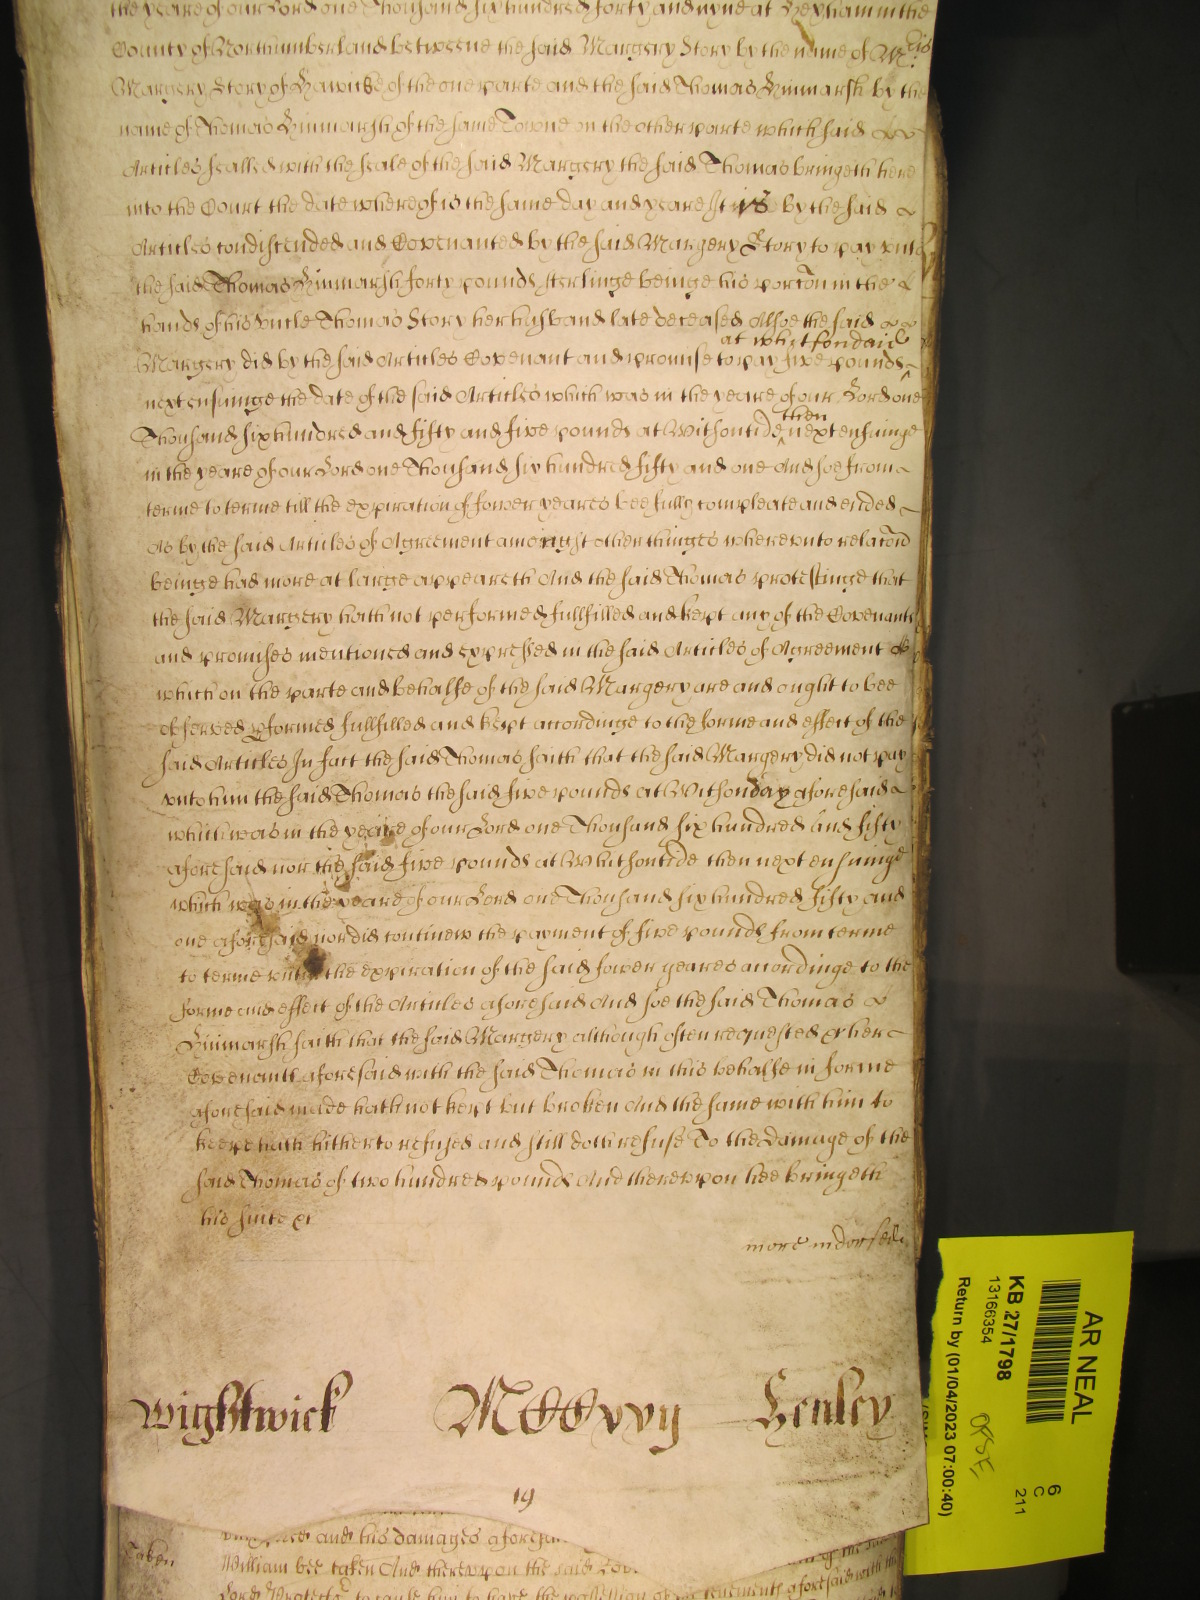 the yeare of our Lord one Thousand six hundred forty and nyne at Hexham in the
County of Northumberland betweene the said Margery Story by the name of Mris
Margery Story of of the one parte and the said Thomas Kinmarsh by the
name of Thomas Kinmarsh of the same Towne on the other parte which said
Articles sealled with the seale of the said Margery the said Thomas bringeth here
into the Court the date whereof is the same day and yeare It is by the said
Articles condiscended and Covenanted by the said Margery Story to pay unto
the said Thomas Kinmarsh forty pounds sterlinge beinge his porcon in the
hands of his uncle Thomas Story her husband late deceased Alsoe the said
at whitsondaie
Margery did by the said Articles Covenant and promise to pay five pounds
next ensuinge the date of the said Articles which was in the yeare of our Lord one
then
Thousand six hundred and fifty and five pounds at Witsontide next ensuinge
in the yeare of our Lord one Thousand six hundred fifty and one And soe from
terme to terme till the expiration of fower yeares bee fully compleate and ended
As by the said Articles of Agreement amongst other thinges whereunto relacon
beinge had more at large appeareth And the said Thomas protestinge that
the said Margery hath not performed fullfilled and kept any of the Covenants
and promises mentioned and expressed in the said Articles of Agreement
which on the parte and behalfe of the said Margery are and ought to bee
observed pformed fullfilled and kept accordinge to the forme and effect of the
said Articles In fact the said Thomas saith that the said Margery did not pay
unto him the said Thomas the said five pounds at Witsonday aforesaid
which was in the yeare of our Lord one Thousand six hundred and fifty
aforesaid nor the said five pounds at Whitsontide then next ensuinge
which was in the yeare of our Lord one Thousand six hundred fifty and
one aforesaid nor did continew the payment of five pounds from terme
to terme untill the expiration of the said fower yeares accordinge to the
forme and effect of the Articles aforesaid And soe the said Thomas
Kinmarsh saith that the said Margery although often requested her
Covenants aforesaid with the said Thomas in this behalfe in forme
aforesaid made hath not kept but broken And the same with him to
keepe hath hitherto refused and still doth refuse To the Damage of the
said Thomas of two hundred pounds And thereupon hee bringeth
his suite &c
more indorsed
Wightwick MCCxvij Henley
19
and his damages aforesaid
Taken William bee taken And thereupon the said
Lord Protector to cause him to have the possession of tenements aforesaid with the
AR NEAL
KB 27/1798
13166354
Return by (01/04/2023 07:00:40)
6
C
211